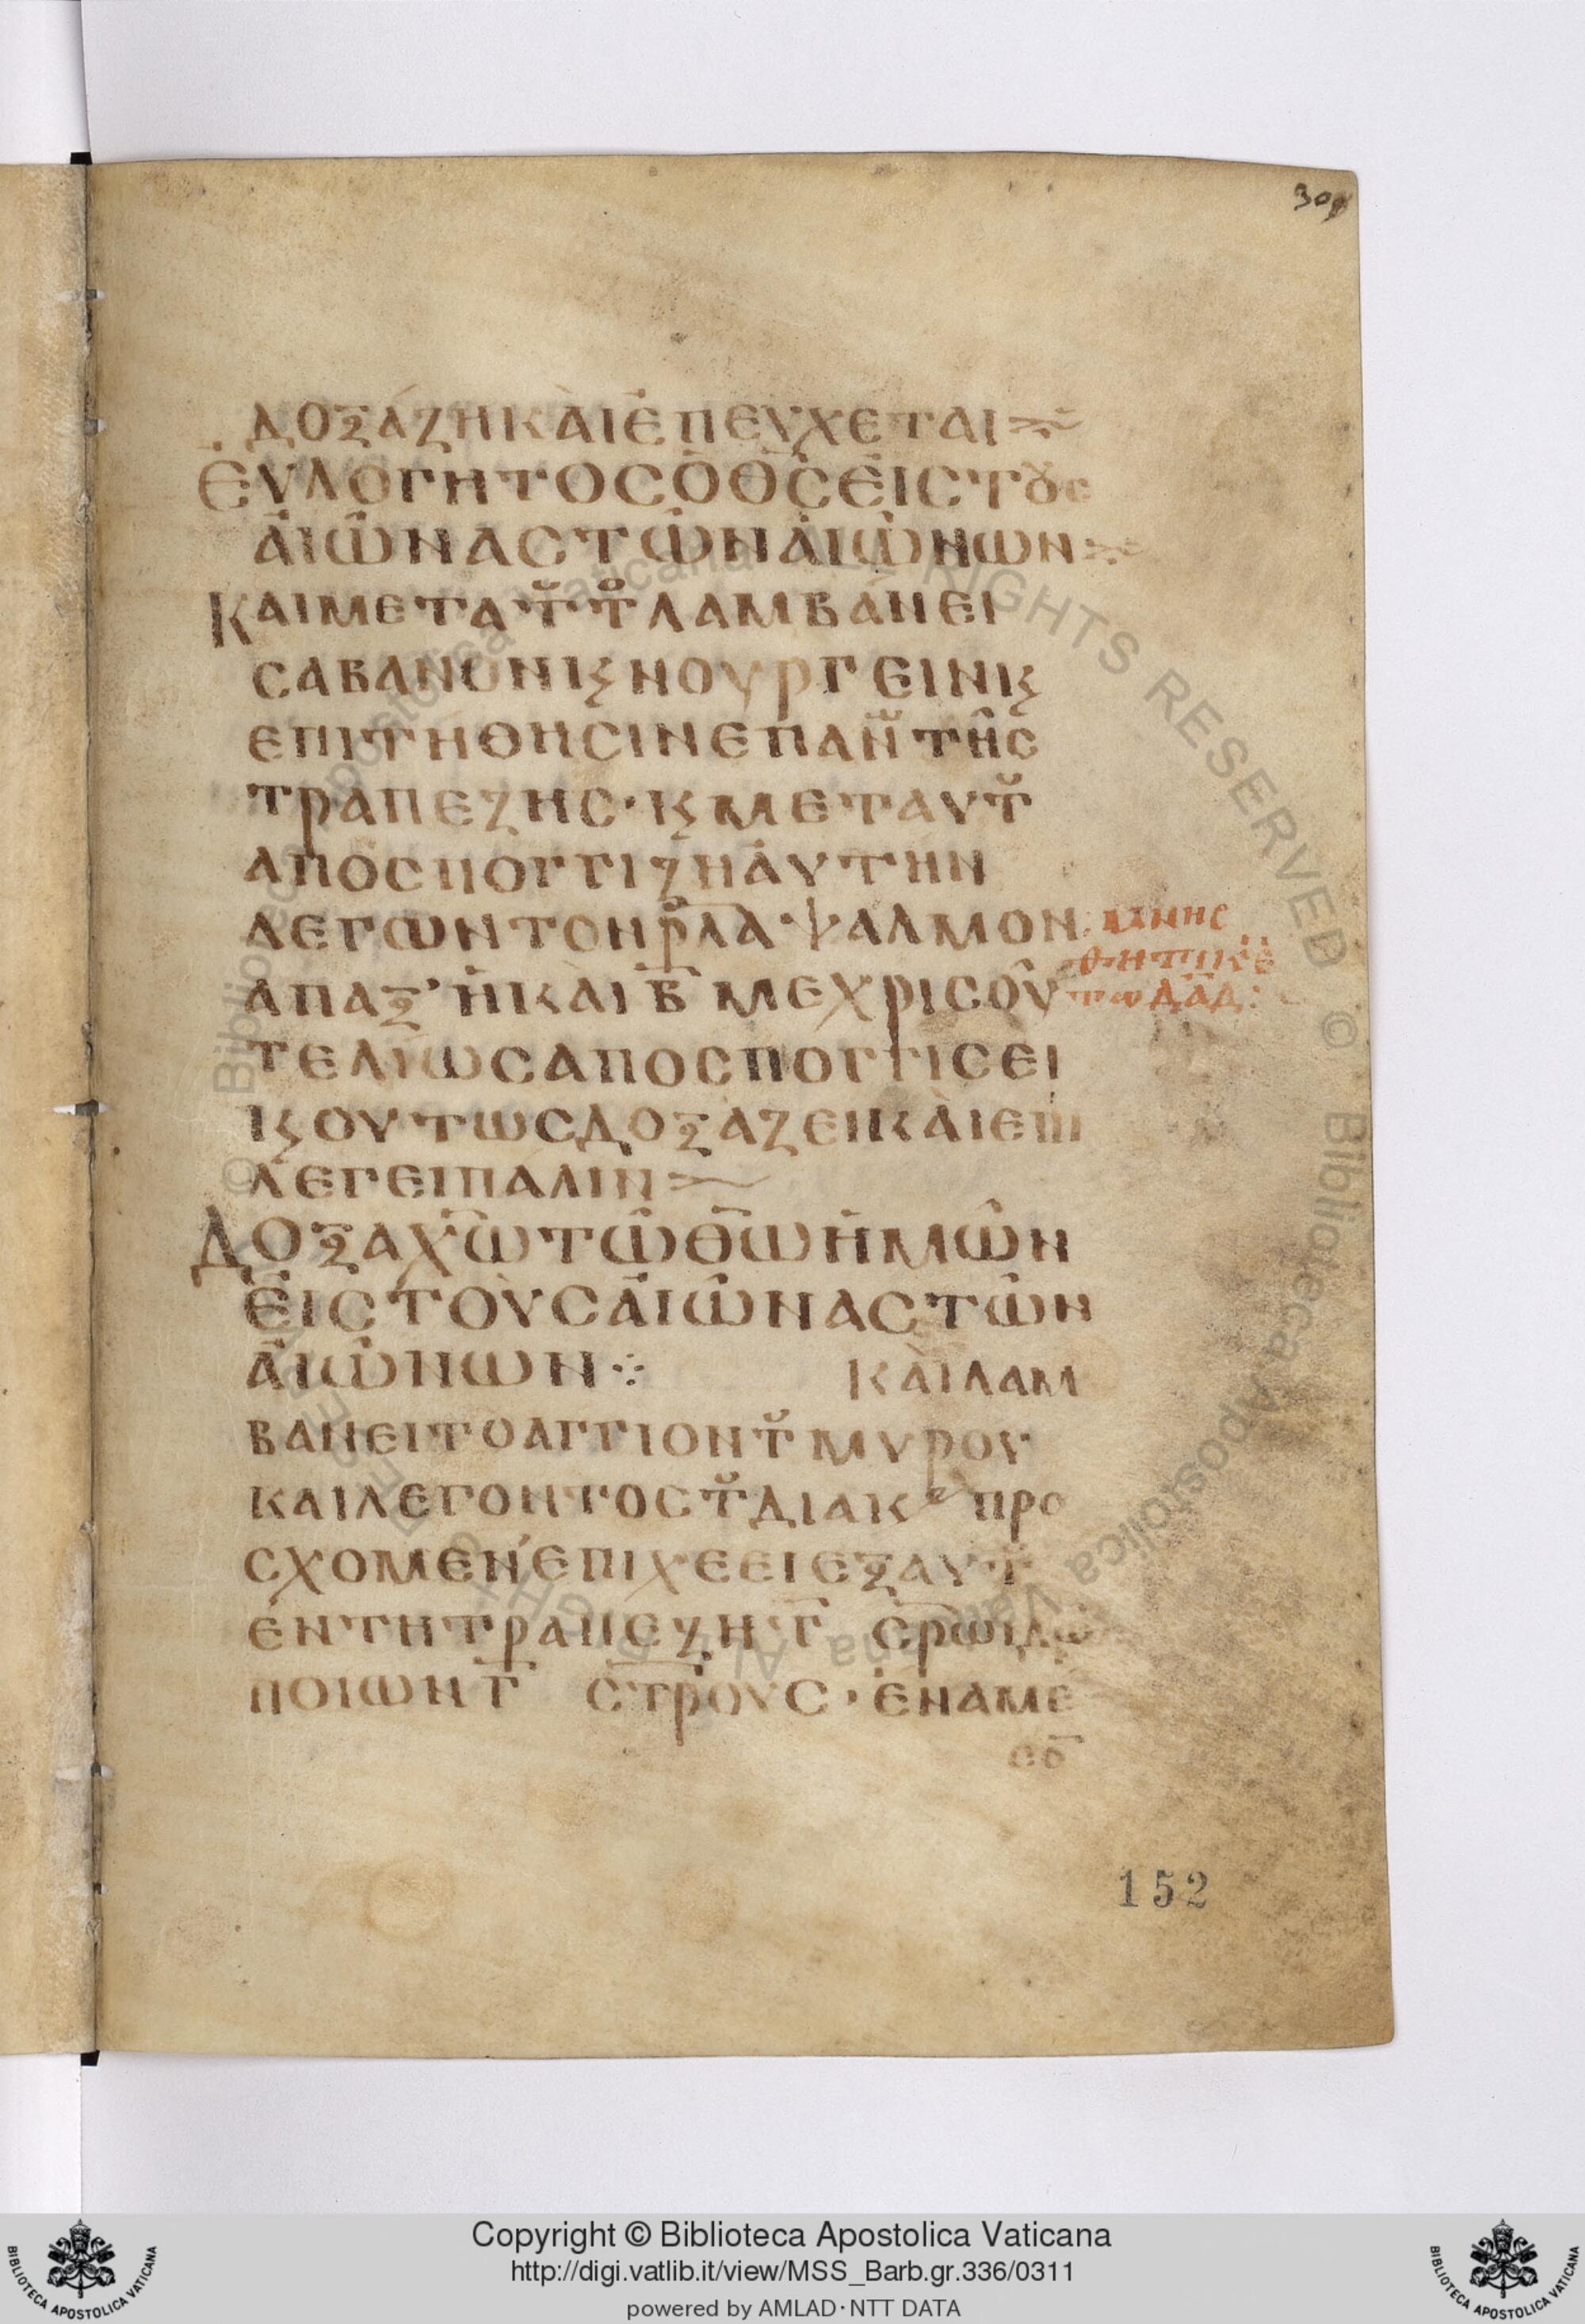 309
ΔΟΞΑΖΗΚΑΙΕΠΕΥΧΕΤΑΙ
ΕΥΛΟΓΗΤΟΣΟΘ̅Σ̅ΕΙΣΤȢΣ
ΑΙΩΝΑΣΤΩΝΑΙΩΝΩΝ
ΚΑΙΜΕΤΑΤȢΤΟΛΑΜΒΑΝΕΙ
ΣΑΒΑΝΟΝΚϚΝΟΥΡΓΕΙΝΚϚ
ΕΠΙΤΗΘΗΣΙΝΕΠΑΝȢΤΗΣ
ΤΡΑΠΕΖΗΣ·ΚϚΜΕΤΑΥΤȢ
ΑΠΟΣΠΟΓΓΙΖΗΑΥΤΗΝ
ΛΕΓΩΝΤΟΝΡ̅Λ̅Α̅·ΨΑΛΜΟΝ: ΜΝΗΣ
ΘΗΤΙΚ̅Ε̅
ΑΠΑΞ'ΗΚΑΙΒ̅ΜΕΧΡΙΣΟΥ ΤΩΔ̅Α̅Δ̅:
ΤΕΛΙΩΣΑΠΟΣΠΟΓΓΙΣΕΙ
ΚϚΟΥΤΩΣΔΟΞΑΖΕΙΚΑΙΕΠΙ
ΛΕΓΕΙΠΑΛΙΝ
ΔΟΞΑΧΩΤΩΘ̅Ω̅ΗΜΩΝ
ΕΙΣΤΟΥΣΑΙΩΝΑΣΤΩΝ
ΑΙΩΝΩΝ ΚΑΙΛΑΜ
ΒΑΝΕΙΤΟΑΓΓΙΟΝΤȢΜΥΡΟΥ
ΚΑΙΛΕΓΟΝΤΟΣΤȢΔΙΑΚΟ ΠΡΟ
ΣΧΟΜΕΝ'ΕΠΙΧΕΕΙΕΞΑΥΤȢ
ΕΝΤΗΤΡΑΠΕΖΗ·Γ̅ Σ̅Ρ̅ΩΙΔΩ
ΠΟΙΩΝΓ̅ Σ̅Τ̅Ρ̅ΟΥΣ·ΕΝΑΜΕ
ΣΟ̅
152
Copyright © Biblioteca Apostolica Vaticana
http://digi.vatlib.it/view/MSS_Barb.gr.336/0311
powered by AMLAD·NTT DATA
BIBLIOTECA APOSTOLICA VATICANA
BIBLIOTECA APOSTOLICA VATICANA